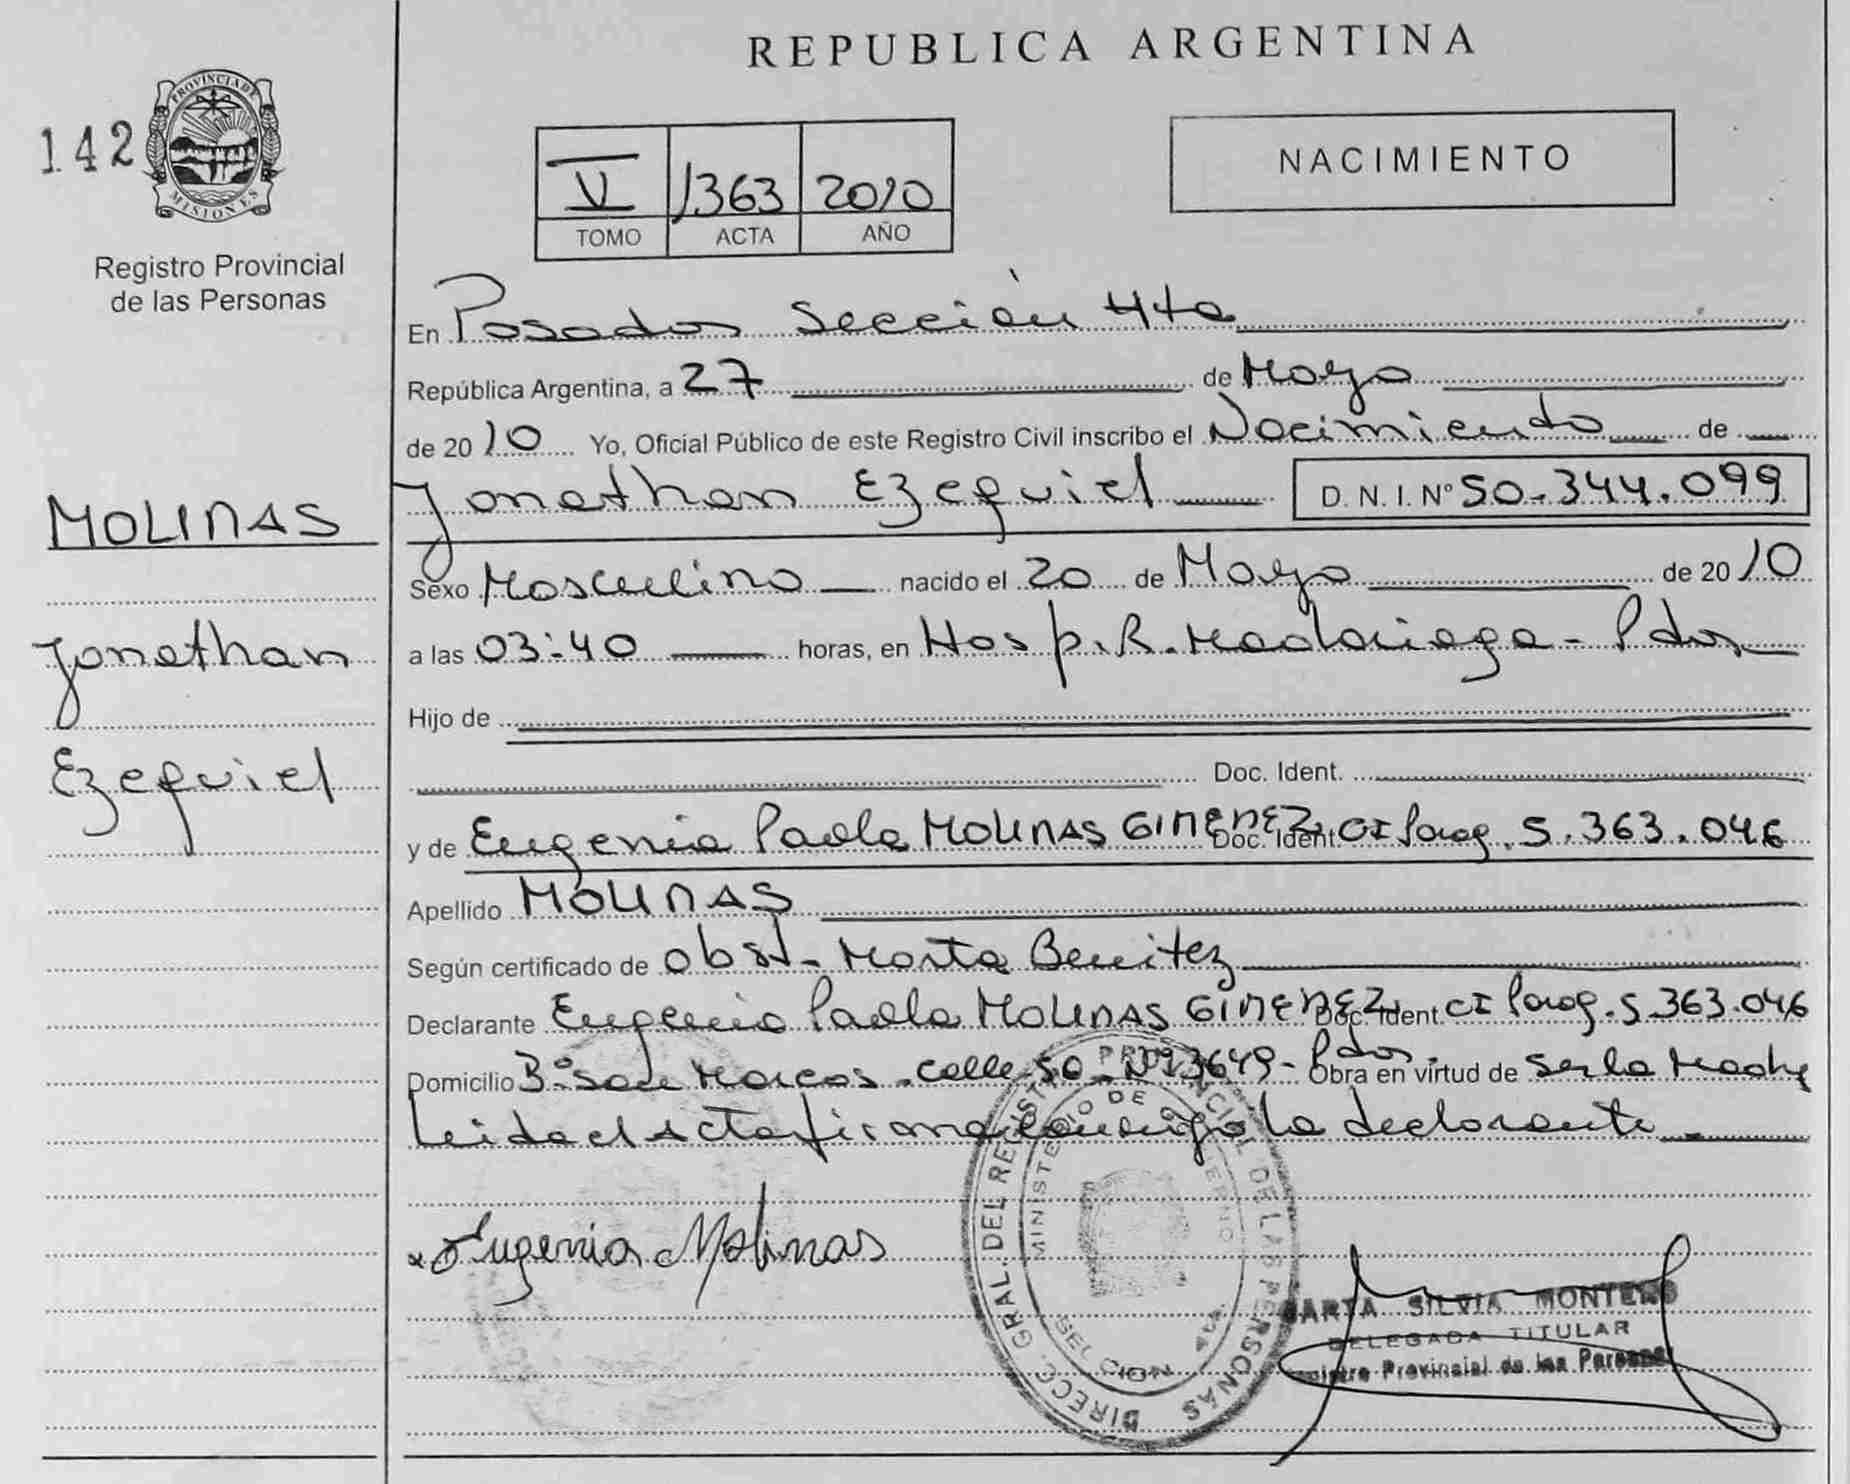 142
PROVINCIA DE
MISIONES
Registro Provincial
de las Personas
MOLINAS
Jonathan
Ezequiel
REPUBLICA ARGENTINA
V 1363 2010
TOMO ACTA AÑO
NACIMIENTO
En Posadas Sección 4ta
República Argentina, a 27 de Mayo
de 2010 Yo, Oficial Público de este Registro Civil inscribo el Nacimiento de
Jonathan Ezequiel D. N. I. Nº 50.344.099
Sexo Masculino nacido el 20 de Mayo de 2010
a las 03:40 horas, en Hosp. R. Madariaga - Pdas
Hijo de
Doc. Ident.
y de Eugenia Paola MOLINAS GIMENEZ Doc. Ident CI Parag. 5.363.046
Apellido MOLINAS
Según certificado de Obst. Marta Benitez
Declarante Eugenia Paola MOLINAS GIMENEZ Doc. Ident CI Parag. 5.363.046
Domicilio Bº San Marcos - calle 50 - Nº 3649 - Pdas. Obra en virtud de ser la Madre
Leida el Acta firma conmigo la declarante
Eugenia Molinas
DIRECC. GRAL. DEL REGISTRO PROVINCIAL DE LAS PERSONAS
MINISTERIO DE GOBIERNO
SECCION 4ta
MARTA SILVIA MONTERO
DELEGADA TITULAR
Registro Provincial de las Personas